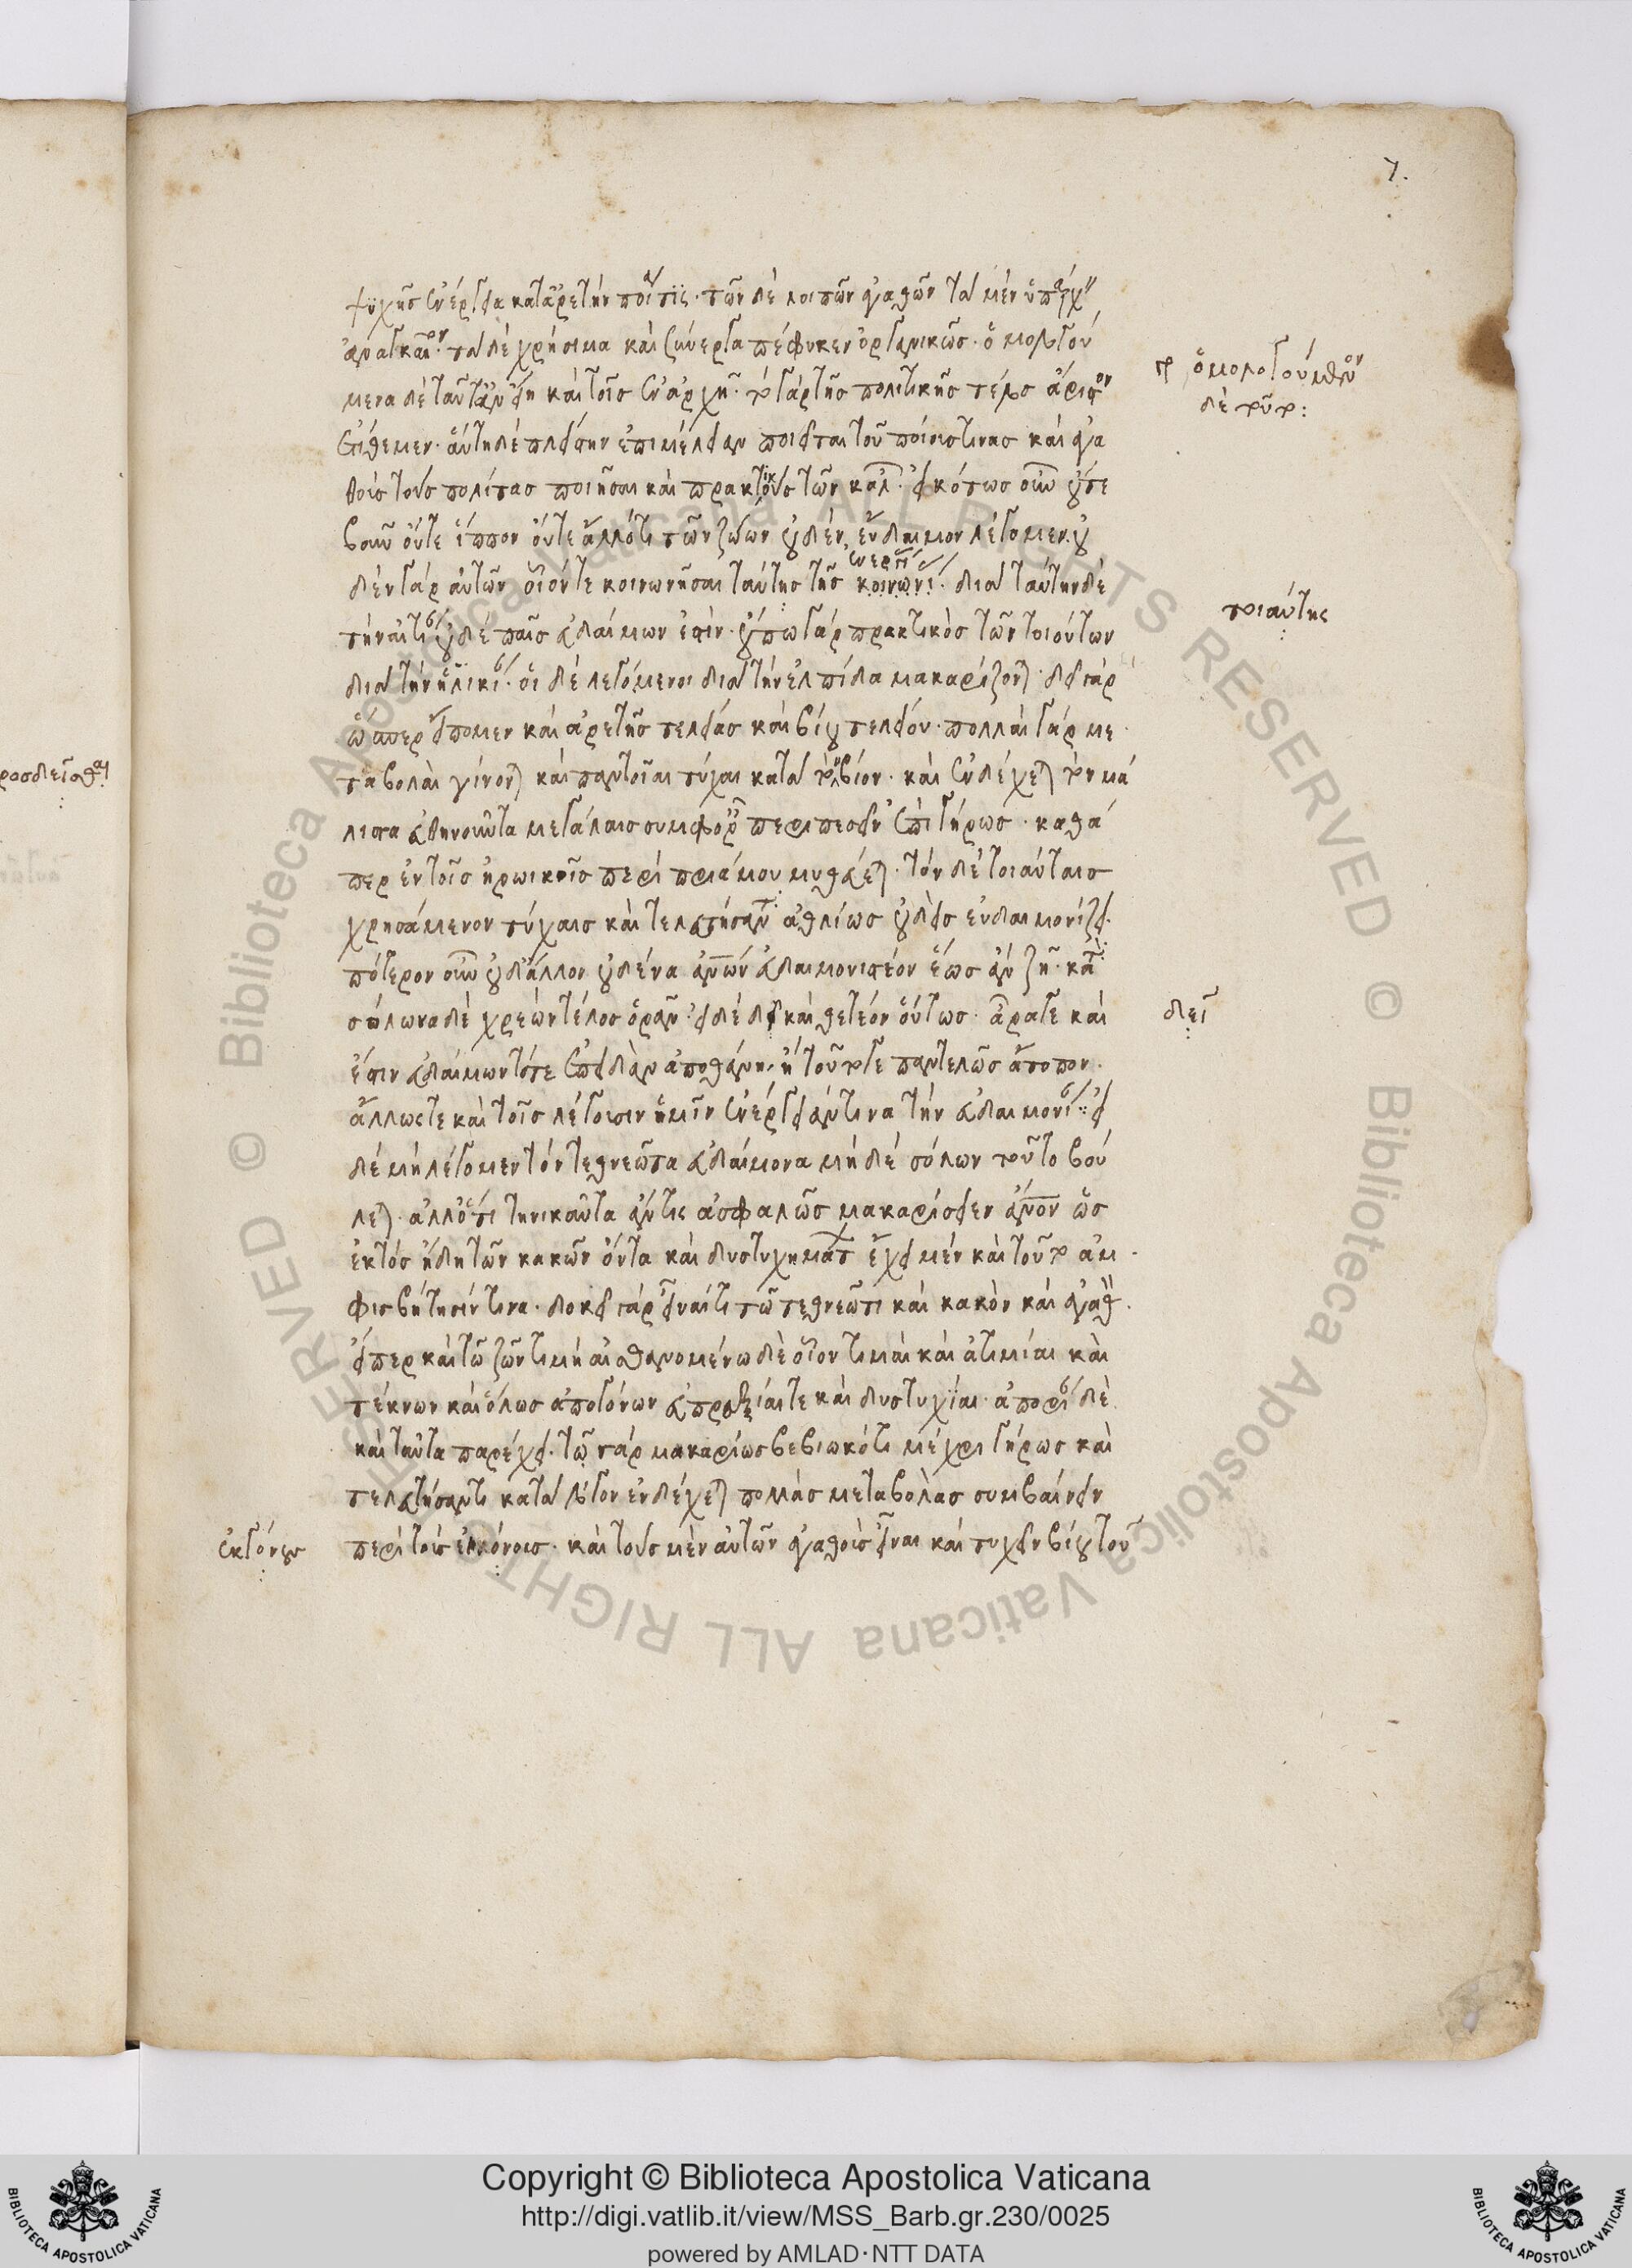 7.
ψυχῆς ἐνέργεια κατ' ἀρετὴν ποιά τις· τῶν δὲ λοιπῶν ἀγαθῶν τὰ μὲν ὑπάρχειν
ἀναγκαῖον· τὰ δὲ χρήσιμα καὶ συνεργὰ πέφυκεν ὀργανικῶς· ὁμολογού
μενα δὲ ταῦτ' ἂν εἴη καὶ τοῖς ἐν ἀρχῇ· τὸ γὰρ τῆς πολιτικῆς τέλος ἄριστον
ἐτίθεμεν· αὕτη δὲ πλείστην ἐπιμέλειαν ποιεῖται τοῦ ποιούς τινας καὶ ἀγα
θοὺς τοὺς πολίτας ποιῆσαι καὶ πρακτικοὺς τῶν καλ· εἰκότως οὖν οὔτε
βοῦν οὔτε ἵππον οὔτε ἄλλό τι τῶν ζώων οὐδὲν εὔδαιμον λέγομεν· οὐ
δὲν γὰρ αὐτῶν οἷόν τε κοινωνῆσαι ταύτης τῆς κοινωνί· διὰ ταύτην δὲ
τὴν αἰτίαν οὐδὲ παῖς εὐδαίμων ἐστίν· οὔπω γὰρ πρακτικὸς τῶν τοιούτων
διὰ τὴν ἡλικίαν· οἱ δὲ λεγόμενοι διὰ τὴν ἐλπίδα μακαρίζονται· δεῖ γὰρ
ὥσπερ εἴπομεν καὶ ἀρετῆς τελείας καὶ βίου τελείου· πολλαὶ γὰρ με
ταβολαὶ γίνονται καὶ παντοῖαι τύχαι κατὰ τὸν βίον· καὶ ἐνδέχεται τὸν μά
λιστα εὐθηνοῦντα μεγάλαις συμφορ περιπεσεῖν ἐπὶ γήρως· καθά
περ ἐν τοῖς ἡρωικοῖς περὶ πριάμου μυθεύεται· τὸν δὲ τοιαύταις
χρησάμενον τύχαις καὶ τελευτήσαντ ἀθλίως οὐδεὶς εὐδαιμονίζει·
πότερον οὖν οὐδ' ἄλλον οὐδένα ἀνων εὐδαιμονιστέον ἕως ἂν ζῇ· κατ
σόλωνα δὲ χρεὼν τέλος ὁρᾶν· εἰ δὲ δὴ καὶ θετέον οὕτως· ἆρά γε καὶ
ἔστιν εὐδαίμων τότε ἐπειδὰν ἀποθάνῃ· ἢ τοῦτό γε παντελῶς ἄτοπον·
ἄλλως τε καὶ τοῖς λέγουσιν ἡμῖν ἐνέργειάν τινα τὴν εὐδαιμονίαν· εἰ
δὲ μὴ λέγομεν τὸν τεθνεῶτα εὐδαίμονα μηδὲ σόλων τοῦτο βού
λεται· ἀλλ' ὅτι τηνικαῦτα ἄν τις ἀσφαλῶς μακαρίσειεν ἄνον ὡς
ἐκτὸς ἤδη τῶν κακῶν ὄντα καὶ δυστυχημάτ ἔχει μὲν καὶ τοῦτ ἀμ
φισβήτησίν τινα· δοκεῖ γὰρ εἶναί τι τῷ τεθνεῶτι καὶ κακὸν καὶ ἀγαθ·
εἴπερ καὶ τῷ ζῶντι μὴ αἰσθανομένω δὲ οἷον τιμαὶ καὶ ἀτιμίαι καὶ
τέκνων καὶ ὅλως ἀπογόνων εὐπραξίαι τε καὶ δυστυχίαι· ἀπορίαν δὲ
καὶ ταῦτα παρέχει· τῷ γὰρ μακαρίως βεβιωκότι μέχρι γήρως καὶ
τελευτήσαντι κατὰ λόγον ἐνδέχεται πολλὰς μεταβολὰς συμβαίνειν
περὶ τοὺς ἐκγόνοις· καὶ τοὺς μὲν αὐτῶν ἀγαθοὺς εἶναι καὶ τυχεῖν βίου τοῦ
ὁμολογούμενον
δὲ τοῦτο:
τοιαύτης
δεῖ
ἐκγόνους
ροσδεῖσθαι
Copyright © Biblioteca Apostolica Vaticana
http://digi.vatlib.it/view/MSS_Barb.gr.230/0025
powered by AMLAD·NTT DATA
BIBLIOTECA APOSTOLICA VATICANA
BIBLIOTECA APOSTOLICA VATICANA
© Biblioteca Apostolica Vaticana ALL RIGHTS RESERVED © Biblioteca Apostolica Vaticana ALL RIGHTS RESERVED